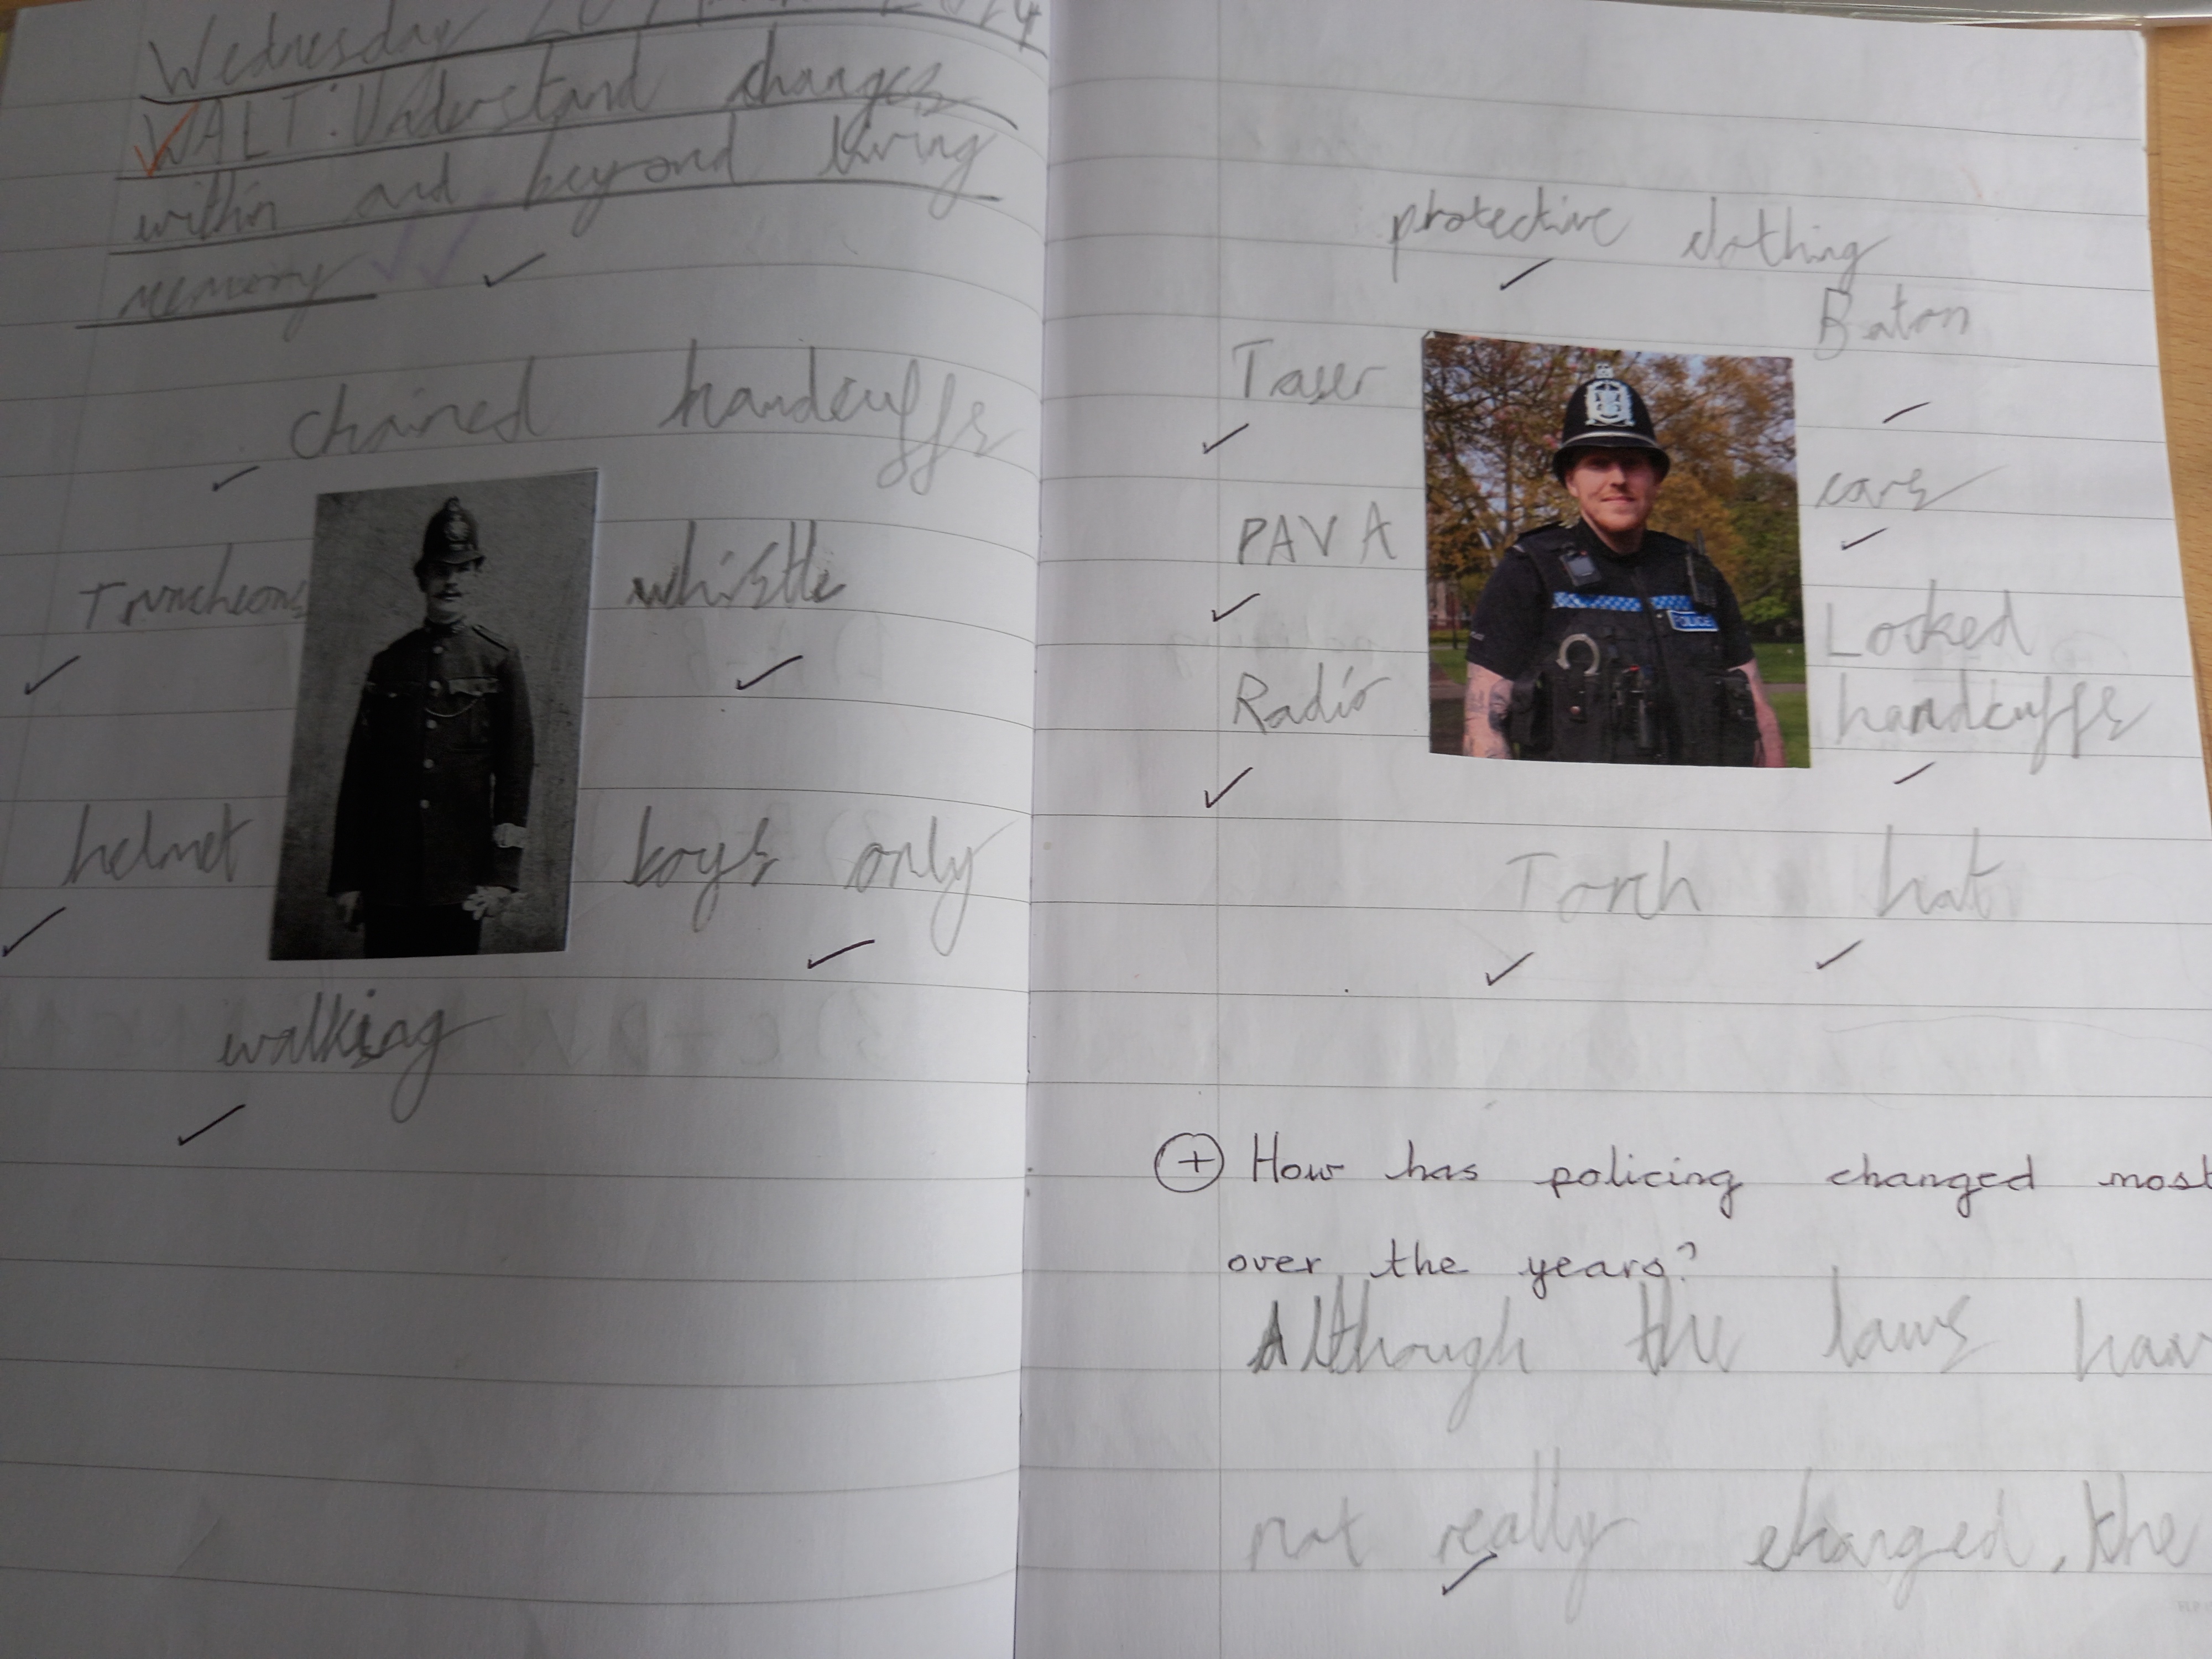 Wednesday
WALT: Understand changes
within and beyond living
memory
chained handcuffs
Truncheons
whistle
helmet
boys only
walking
protective clothing
Baton
Taser
cars
PAVA
Locked
handcuffs
Radio
POLICE
Torch hat
+ How has policing changed most
over the years?
Although the laws hav
not really changed, the